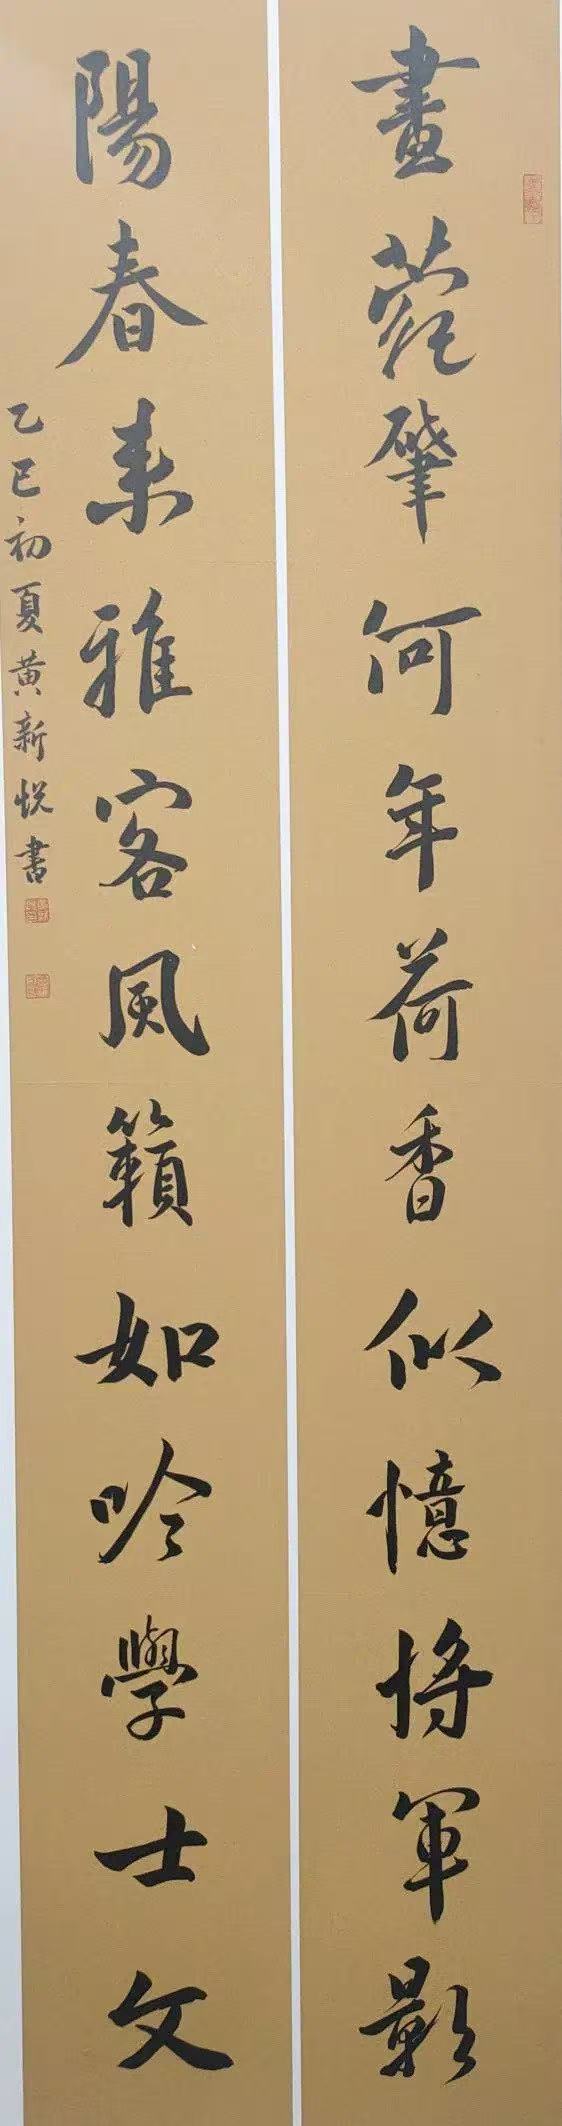 畫苑肇何年荷香似憶将軍影
陽春来雅客風籟如吟學士文
乙巳初夏黄新悦書